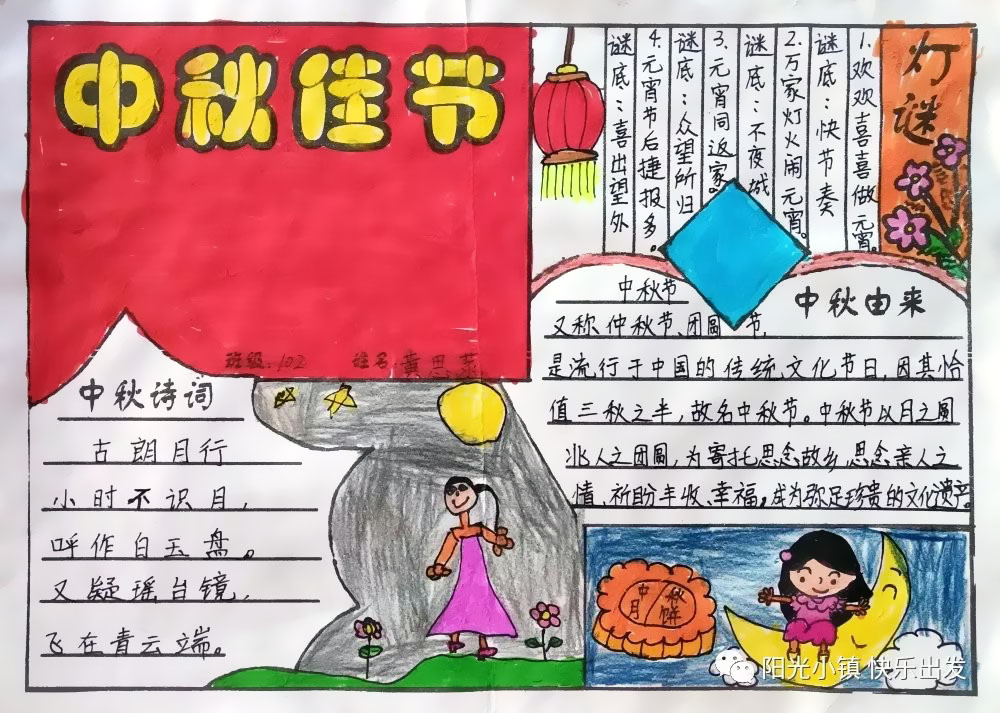 中秋佳节
班级:102 姓名:黄思
灯谜
1.欢欢喜喜做元宵。
谜底:快节奏
2.万家灯火闹元宵。
谜底:不夜城
3.元宵同返家。
谜底:众望所归
4.元宵节后捷报多。
谜底:喜出望外
中秋由来
中秋节
又称仲秋节、团圆节,
是流行于中国的传统文化节日,因其恰
值三秋之半,故名中秋节。中秋节以月之圆
兆人之团圆,为寄托思念故乡,思念亲人之
情、祈盼丰收、幸福,成为弥足珍贵的文化遗产
中秋诗词
古朗月行
小时不识月,
呼作白玉盘。
又疑瑶台镜,
飞在青云端。
中秋
月饼
阳光小镇 快乐出发